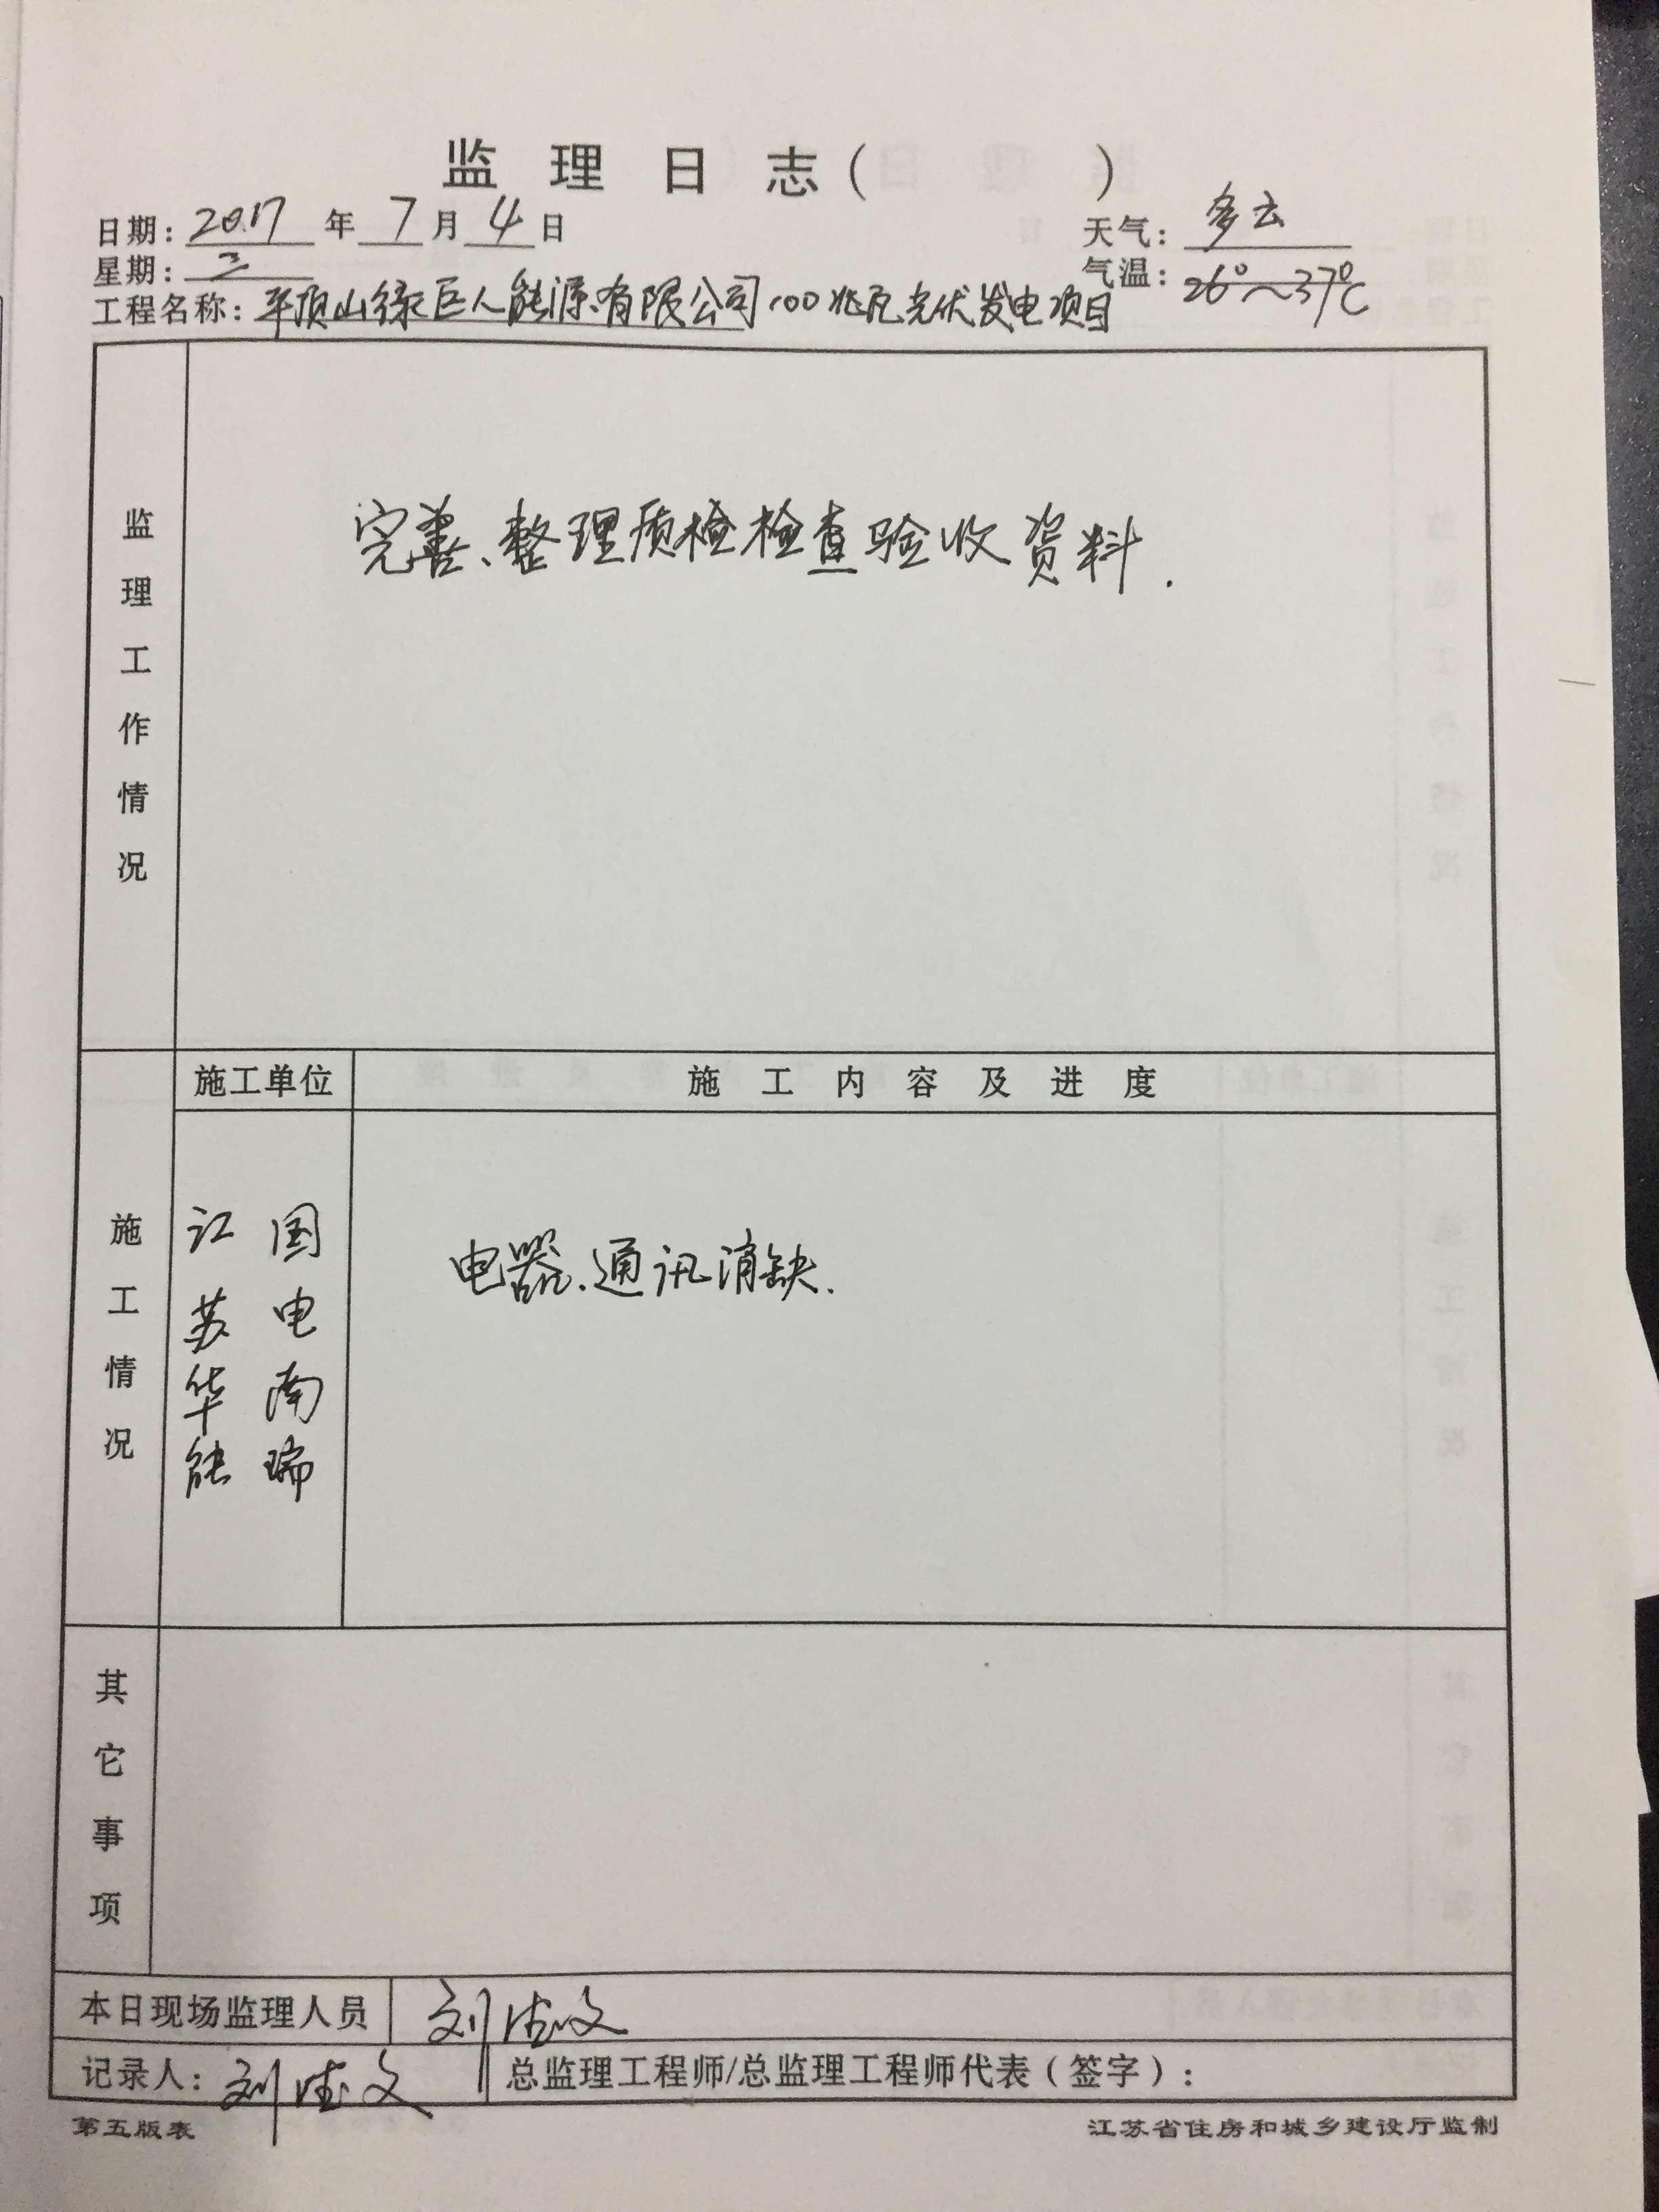 监理日志（ ）
日期：2017年7月4日 天气：多云
星期：二 气温：26°～37℃
工程名称：平顶山绿巨人能源有限公司100兆瓦光伏发电项目
监理工作情况
完善、整理质检检查验收资料.
施工单位 施工内容及进度
施工情况
江苏华能
国电南瑞
电器、通讯消缺.
其它事项
本日现场监理人员 刘德文
记录人：刘德文 总监理工程师/总监理工程师代表（签字）：
第五版表 江苏省住房和城乡建设厅监制